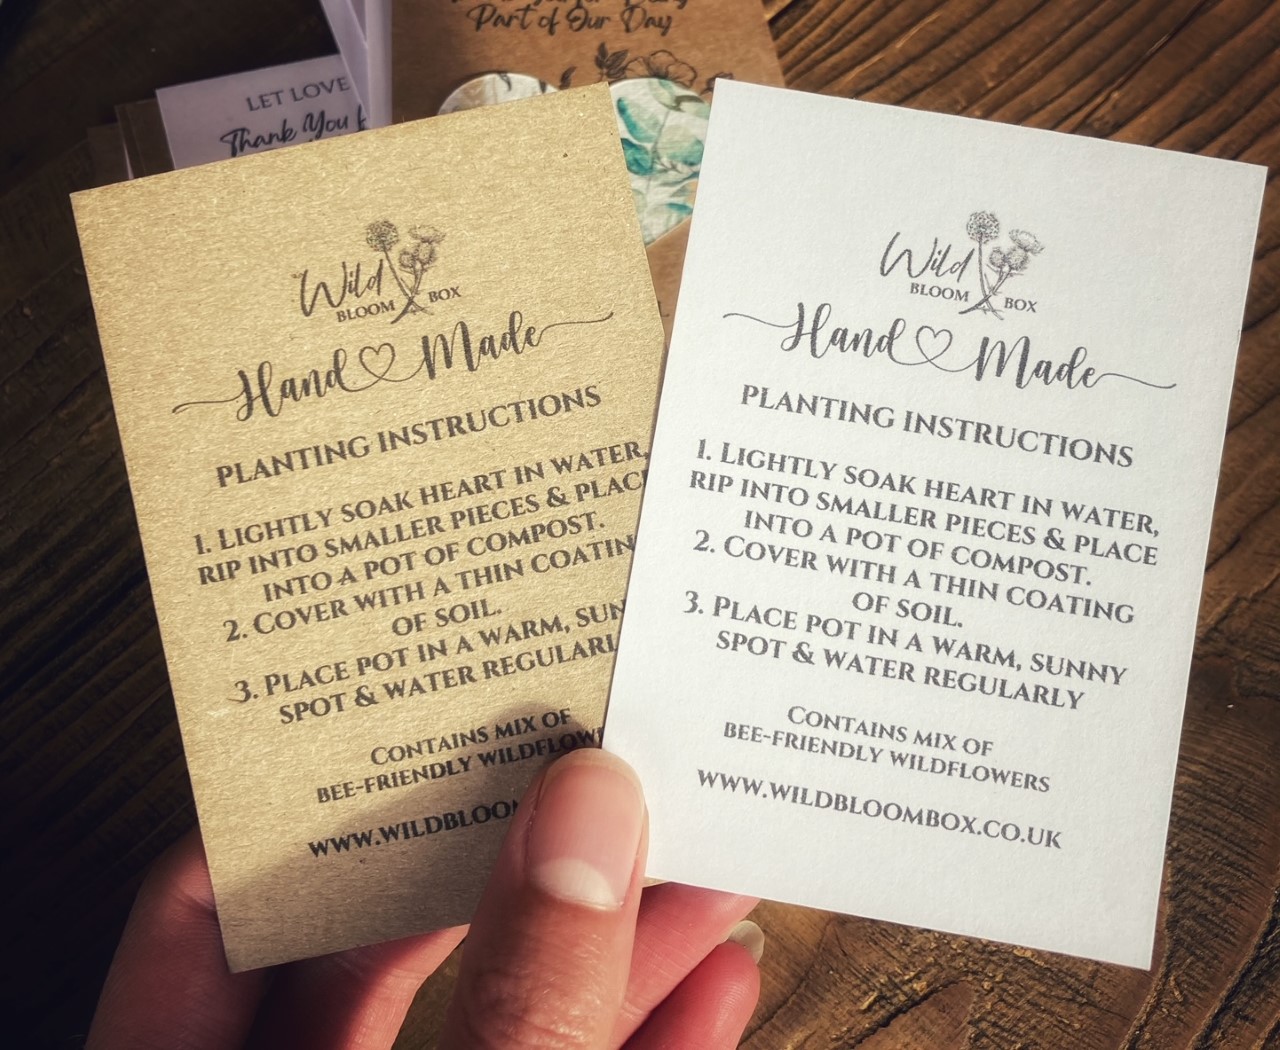 Part of Our Day
LET LOVE
Thank You
Wild
BLOOM BOX
Hand Made
PLANTING INSTRUCTIONS
1. LIGHTLY SOAK HEART IN WATER,
RIP INTO SMALLER PIECES & PLAC
INTO A POT OF COMPOST.
2. COVER WITH A THIN COATIN
OF SOIL.
3. PLACE POT IN A WARM, SUN
SPOT & WATER REGULARL
CONTAINS MIX OF
BEE-FRIENDLY WILDFLOW
WWW.WILDBLOOM
Wild
BLOOM BOX
Hand Made
PLANTING INSTRUCTIONS
1. LIGHTLY SOAK HEART IN WATER,
RIP INTO SMALLER PIECES & PLACE
INTO A POT OF COMPOST.
2. COVER WITH A THIN COATING
OF SOIL.
3. PLACE POT IN A WARM, SUNNY
SPOT & WATER REGULARLY
CONTAINS MIX OF
BEE-FRIENDLY WILDFLOWERS
WWW.WILDBLOOMBOX.CO.UK